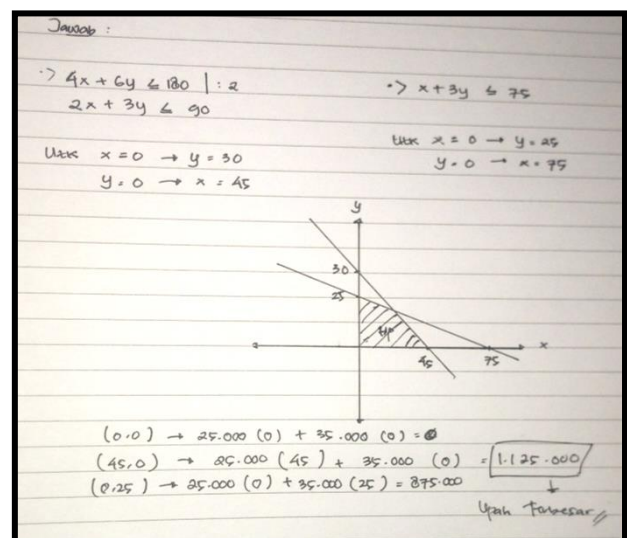 Jawab :
·> 4x + 6y ≤ 180 | : 2
2x + 3y ≤ 90
Utk x = 0 → y = 30
y = 0 → x = 45
·> x + 3y ≤ 75
Utk x = 0 → y = 25
y = 0 → x = 75
y
30
25
HP
45
75
x
(0,0) → 25.000 (0) + 35.000 (0) = 0
(45,0) → 25.000 (45) + 35.000 (0) = 1.125.000
(0,25) → 25.000 (0) + 35.000 (25) = 875.000
↓
Upah Terbesar